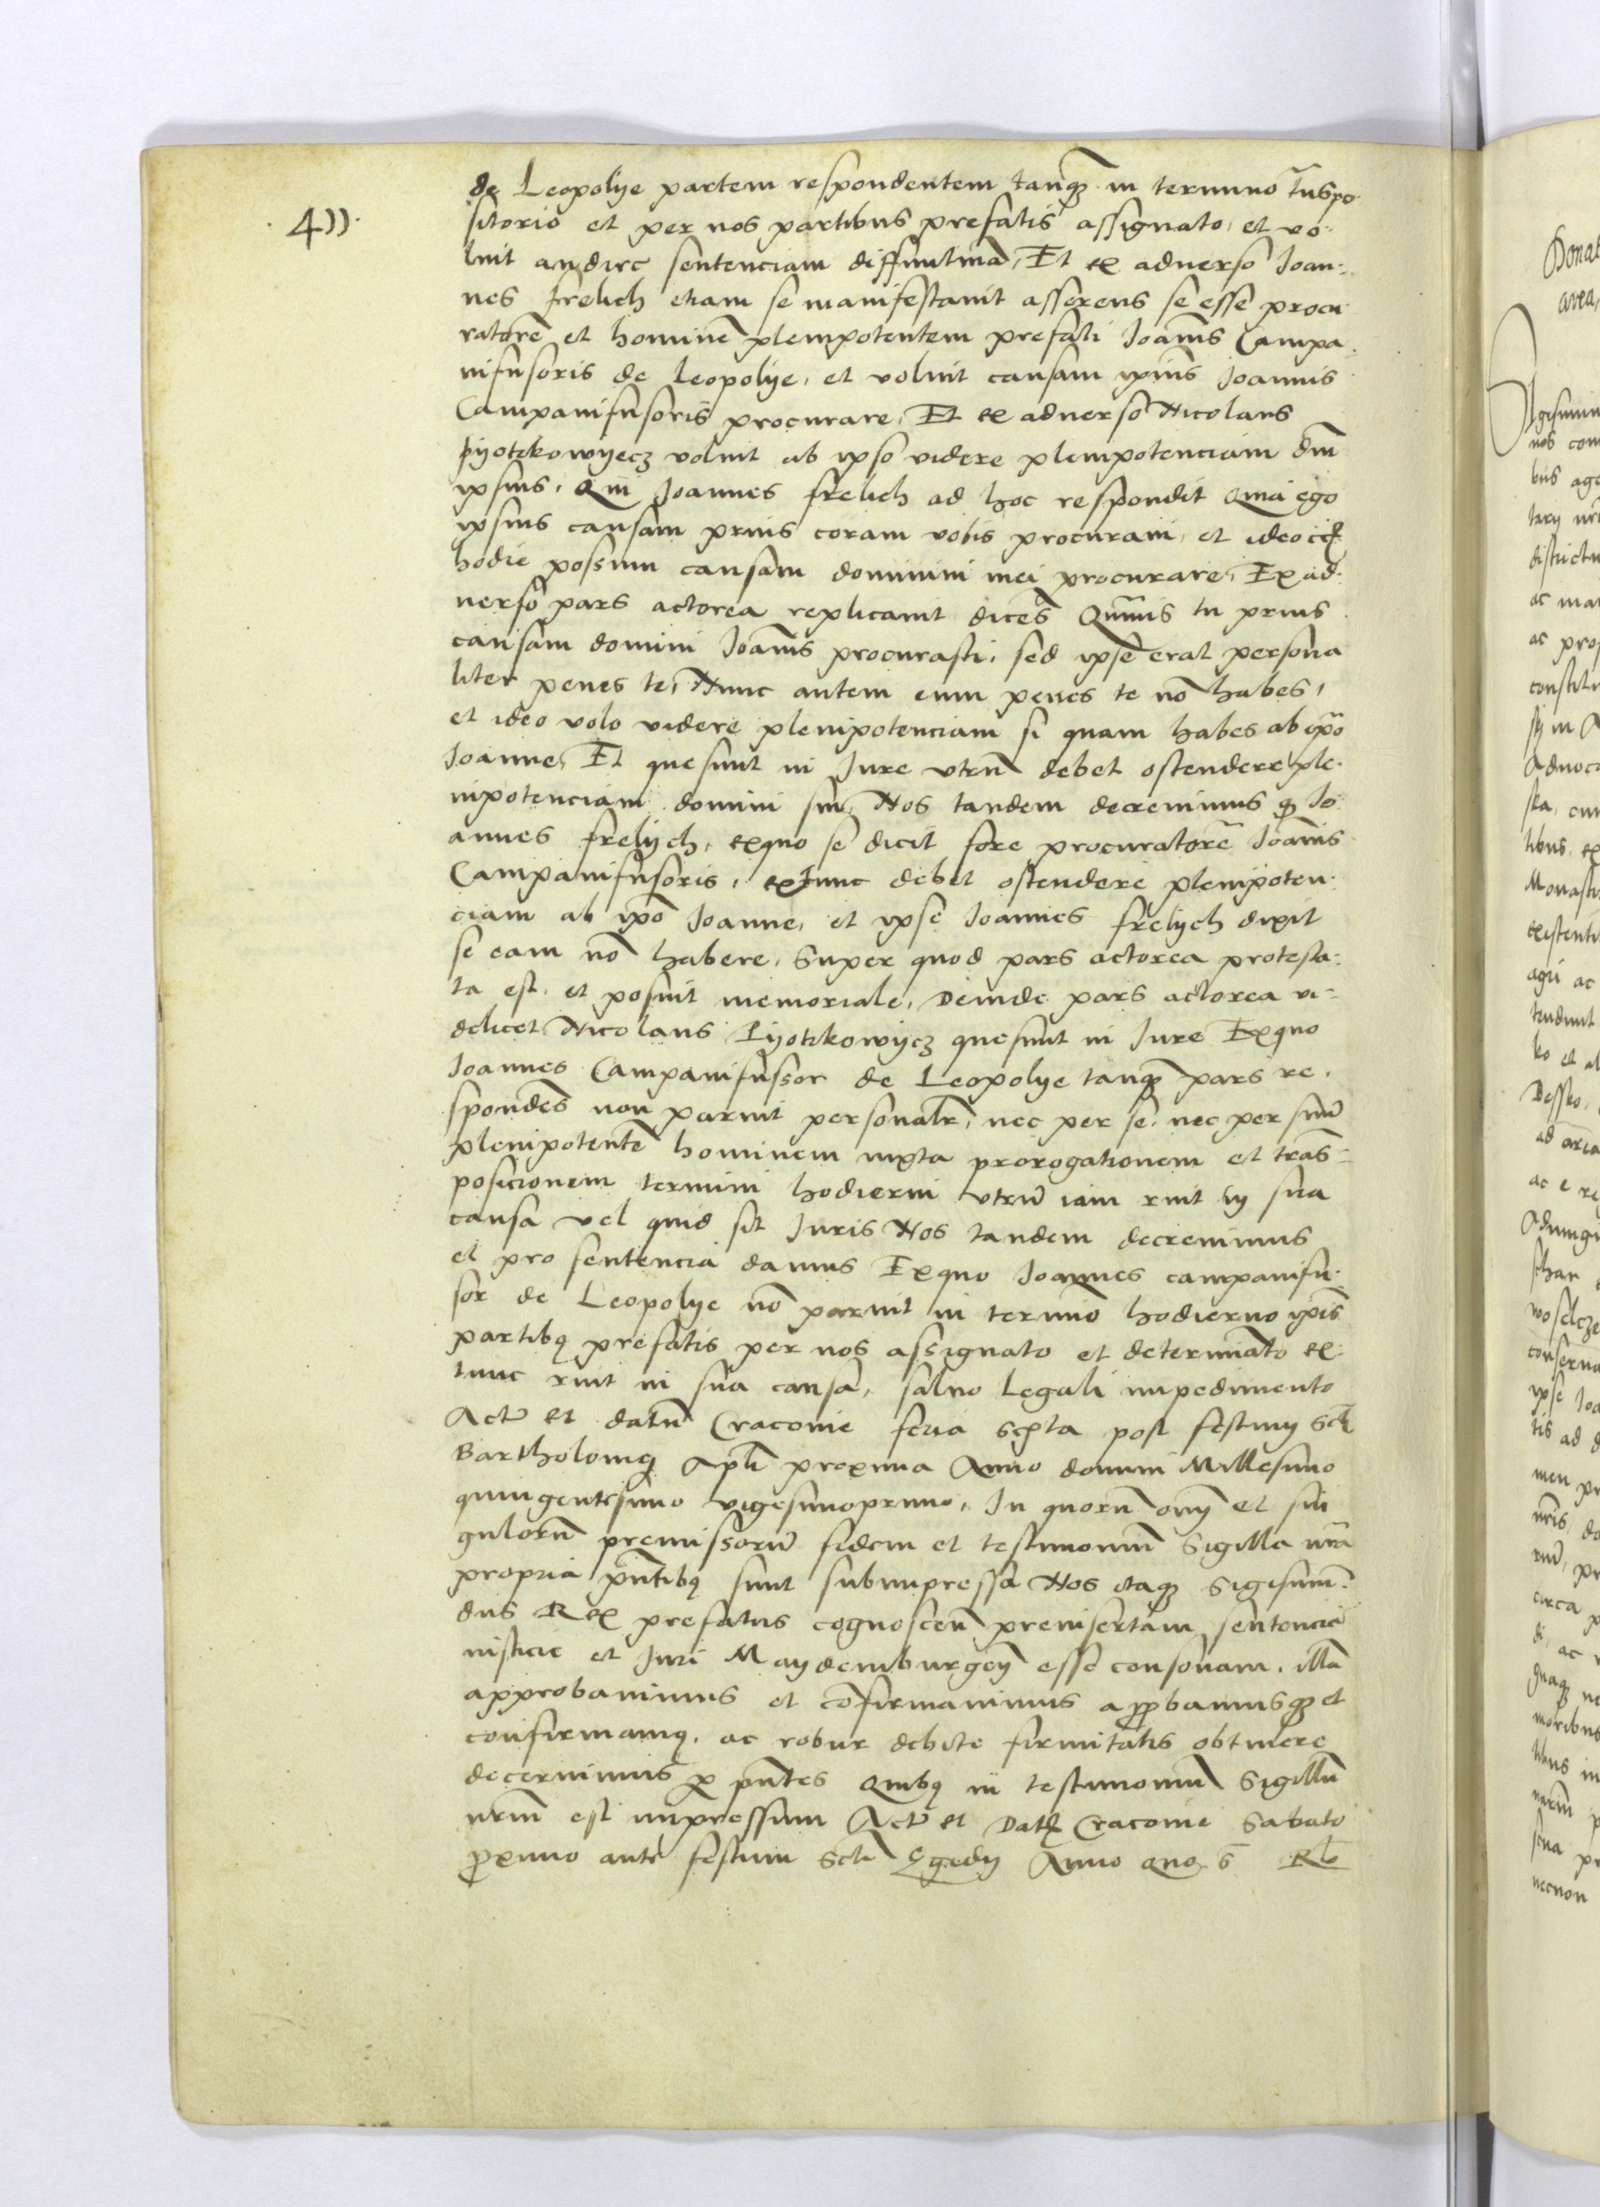 433.
de Leopolye partem respondentem tanq̃ in termino trãspo-
sitorio et per nos partibus prefatis assignato, et vo-
luit audire sentenciam diffinitiuã, Et ex aduerso Ioan-
nes frelich etiam se manifestauit asserens se esse procu
ratorẽ et hominẽ plenipotentem prefati Ioãnis Campa
nifusoris de Leopolye, et voluit causam ipsius Ioannis
Campanifusoris procurare, Et ex aduerso Nicolaus
pyotrkowyecz voluit ab ipso videre plenipotenciam dñi
ipsius, Qui Ioannes frelich ad hoc respondit Quia ego
ipsius causam prius coram vobis procuraui, et ideo
hodie possum causam domini mei procurare, Ex ad-
uerso pars actorea replicauit dicẽs Quãuis tu prius
causam domini Ioãnis procurasti, sed ipse erat persona
liter penes te, Nunc autem eum penes te nõ habes,
et ideo volo videre plenipotenciam si quam habes ab ipõ
Ioanne, Et quesiuit in Iure vtrũ debet ostendere ple-
nipotenciam domini sui, Nos tandem decreuimus q̃ Io
annes frelych, exquo se dicit fore procuratorẽ Ioãnis
Campanifusoris, extunc debet ostendere plenipoten-
ciam ab ipõ Ioanne, et ipse Ioannes frelych dixit
se eam nõ habere, Super quod pars actorea protesta-
ta est, et posuit memoriale, Deinde pars actorea vi-
delicet Nicolaus Pyotrkowycz quesiuit in Iure Exquo
Ioannes Campanifussor de Leopolye tanq̃ pars re-
spondẽs non paruit personalr̃, nec per se, nec per suũ
plenipotentẽ hominem iuxta prorogationem et trãs-
posicionem termini hodierni vtrũ iam ruit in sua
causa vel quid sit Iuris Nos tandem decreuimus
et pro sentencia damus Exquo Ioannes campanifu-
sor de Leopolye nõ paruit in termino hodierno ipĩs
partibꝫ prefatis per nos assignato et determinato ex
tunc ruit in sua causa, saluo legali impedimento
Actũ et datũ Cracouie feria sexta post festum Sctĩ
Bartholomei Aplĩ proxima Anno domini Millesimo
quingentesimo vigesimoprimo, In quorũ oim̃ et sin
gulorũ premissorũ fidem et testimoniũ Sigilla nrã
propria pñtibꝫ sunt subimpressa Nos itaqꝫ Sigismũ-
dus Rex prefatus cognoscen̄ preinsertam sentenciã
iusticie et Iuri Maydemburgen̄ esse consonam, illã
approbauimus et cõfirmauimus approbamusqꝫ et
confirmamꝫ, ac robur debite firmitatis obtinere
decernimus ꝑ pñtes Quibꝫ in testimoniũ Sigillũ
nrm̃ est impressum Actũ et Datũ Cracouie Sabato
ꝓximo ante festum Sctĩ Egidy Anno quo s̃ Rĩ